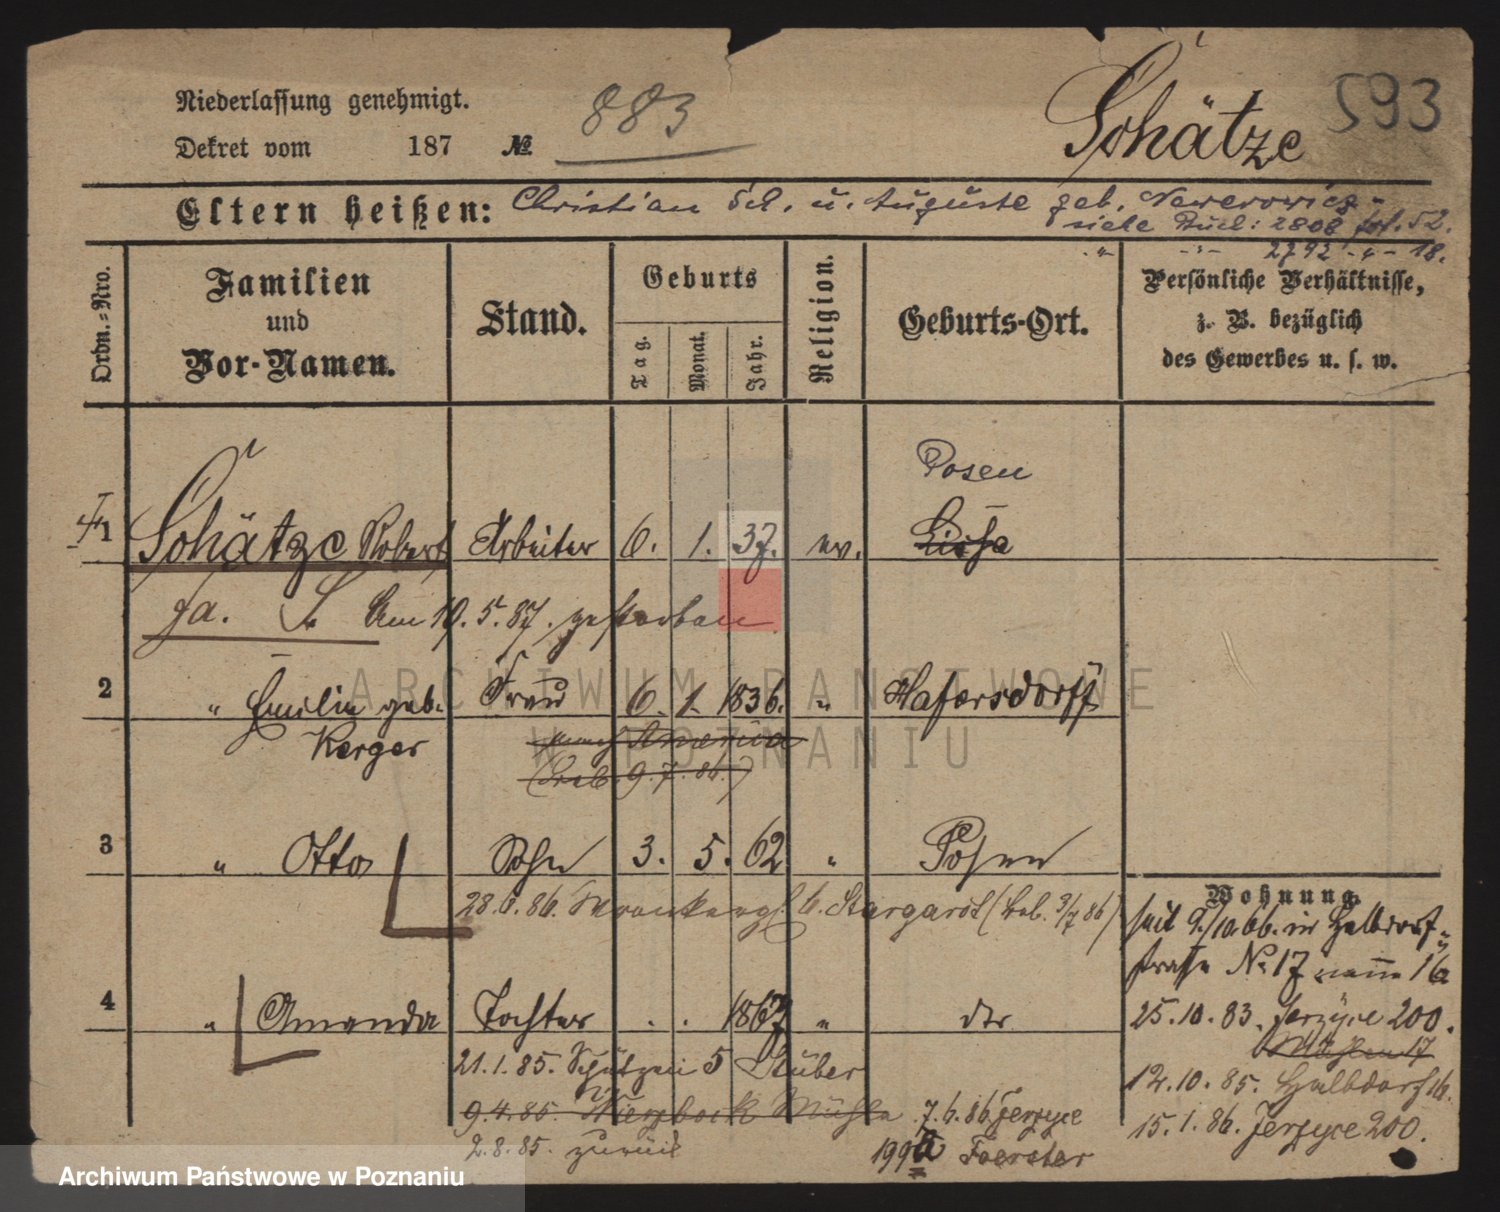 Niederlassung genehmigt.
Dekret vom 187 № 883
Schätze 593
Eltern heißen: Christian Sch. u. Auguste geb.
siehe Buch: 2808 fol. 52.
" -"- 2792 -"- 18.
Ordn.-Nro.
Familien
und
Vor-Namen.
Stand.
Geburts
Tag.
Monat.
Jahr.
Religion.
Geburts-Ort.
Persönliche Verhältnisse,
z. B. bezüglich
des Gewerbes u. s. w.
Posen
1 Schätze Robert Arbeiter 6. 1. 37. ev. Lissa
Am 19.5.87. gestorben
2 " Emilie geb. Frau 6. 1. 1836. " Hafersdorff
Kerger
nach America
9.7.86.)
3 " Otto Sohn 3. 5. 62 " Posen
28.6.86. Stargardt
Wohnung.
seit 9/10.66. in Halbdorf-
straße No 17 16
4 " Amanda Tochter . . 1867 " dto
25.10.83. Jerzyce 200.
Mühlen 17
21.1.85. Schützen 5 Stüber
12.10.85. Halbdorf 16.
9.4.85. Mühle 7.6.86 Jerzyce
15.1.86. Jerzyce 200.
2.8.85. zurück 199a Foerster
ARCHIWUM PAŃSTWOWE
W POZNANIU
Archiwum Państwowe w Poznaniu